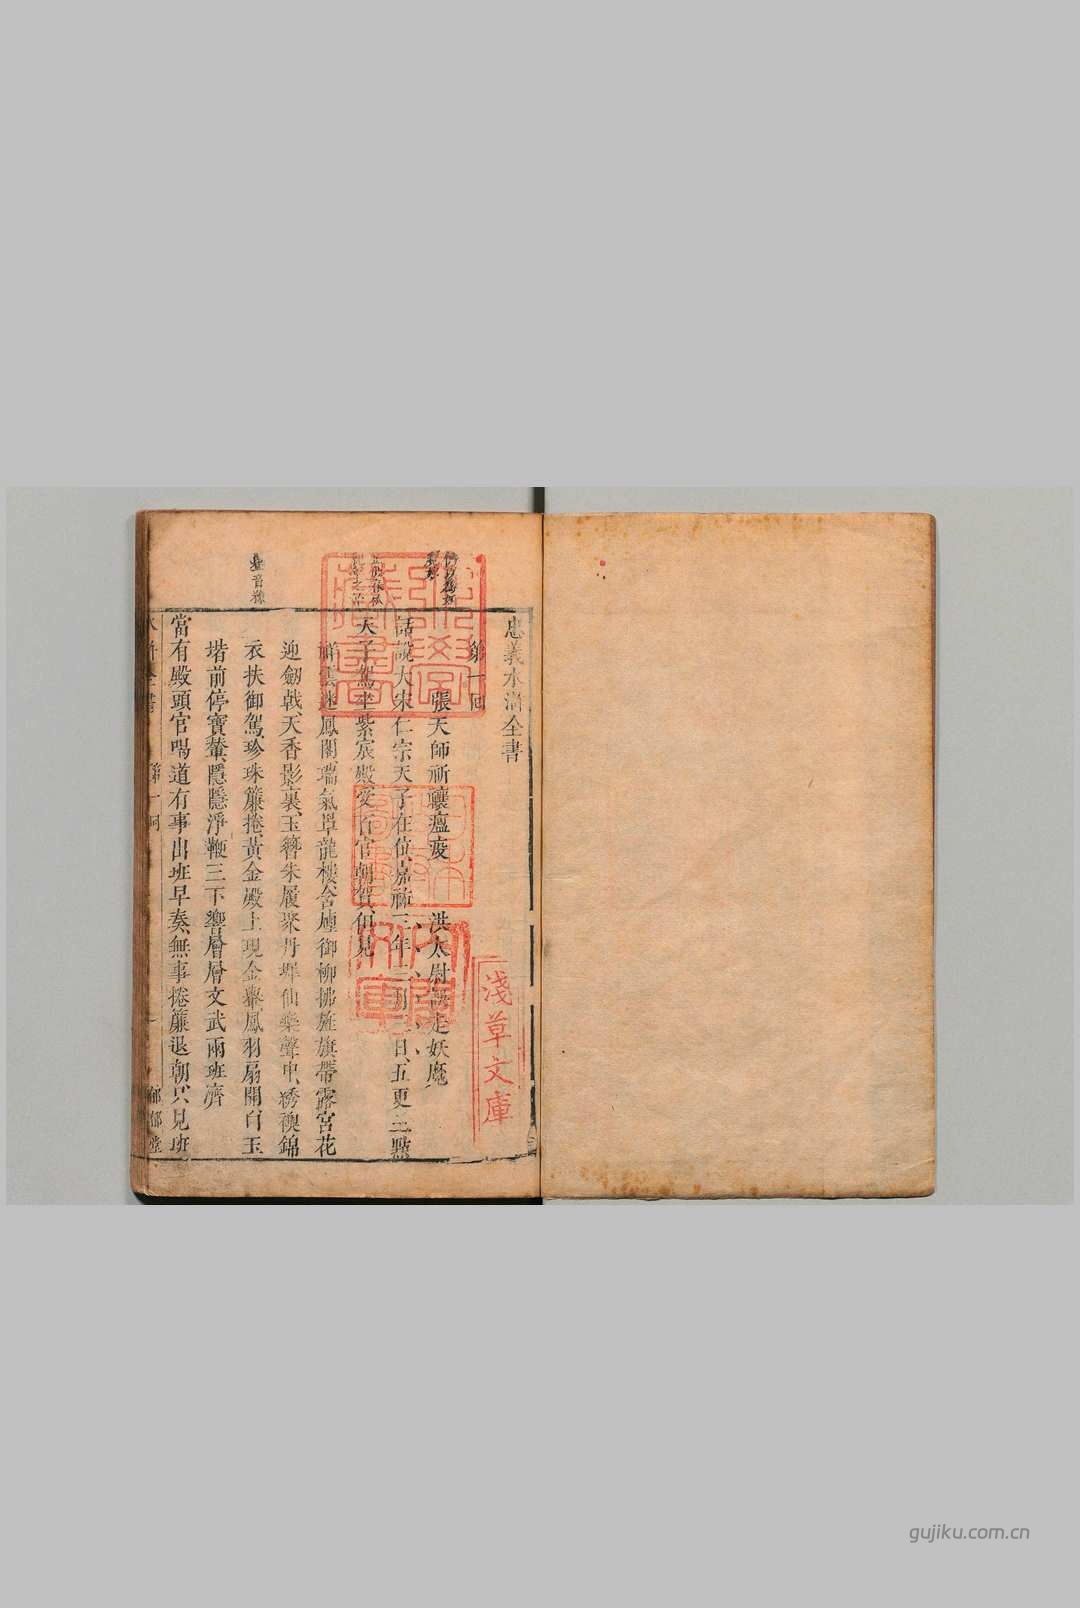 忠義水滸全書
第一回
張天師祈禳瘟疫 洪太尉誤走妖魔
話說大宋仁宗天子在位嘉祐三年三月三日五更三點
天子駕坐紫宸殿受百官朝賀但見
祥雲迷鳳閣瑞氣罩龍樓含煙御柳拂旌旗帶露宮花
迎劒戟天香影裏玉簪朱履聚丹墀仙樂聲中綉襖錦
衣扶御駕珍珠簾捲黃金殿上現金轝鳳羽扇開白玉
堦前停寶輦隱隱淨鞭三下響層層文武兩班齊
當有殿頭官喝道有事出班早奏無事捲簾退朝只見班
水滸全書 第一回 一 郁郁堂
淺草文庫
gujiku.com.cn